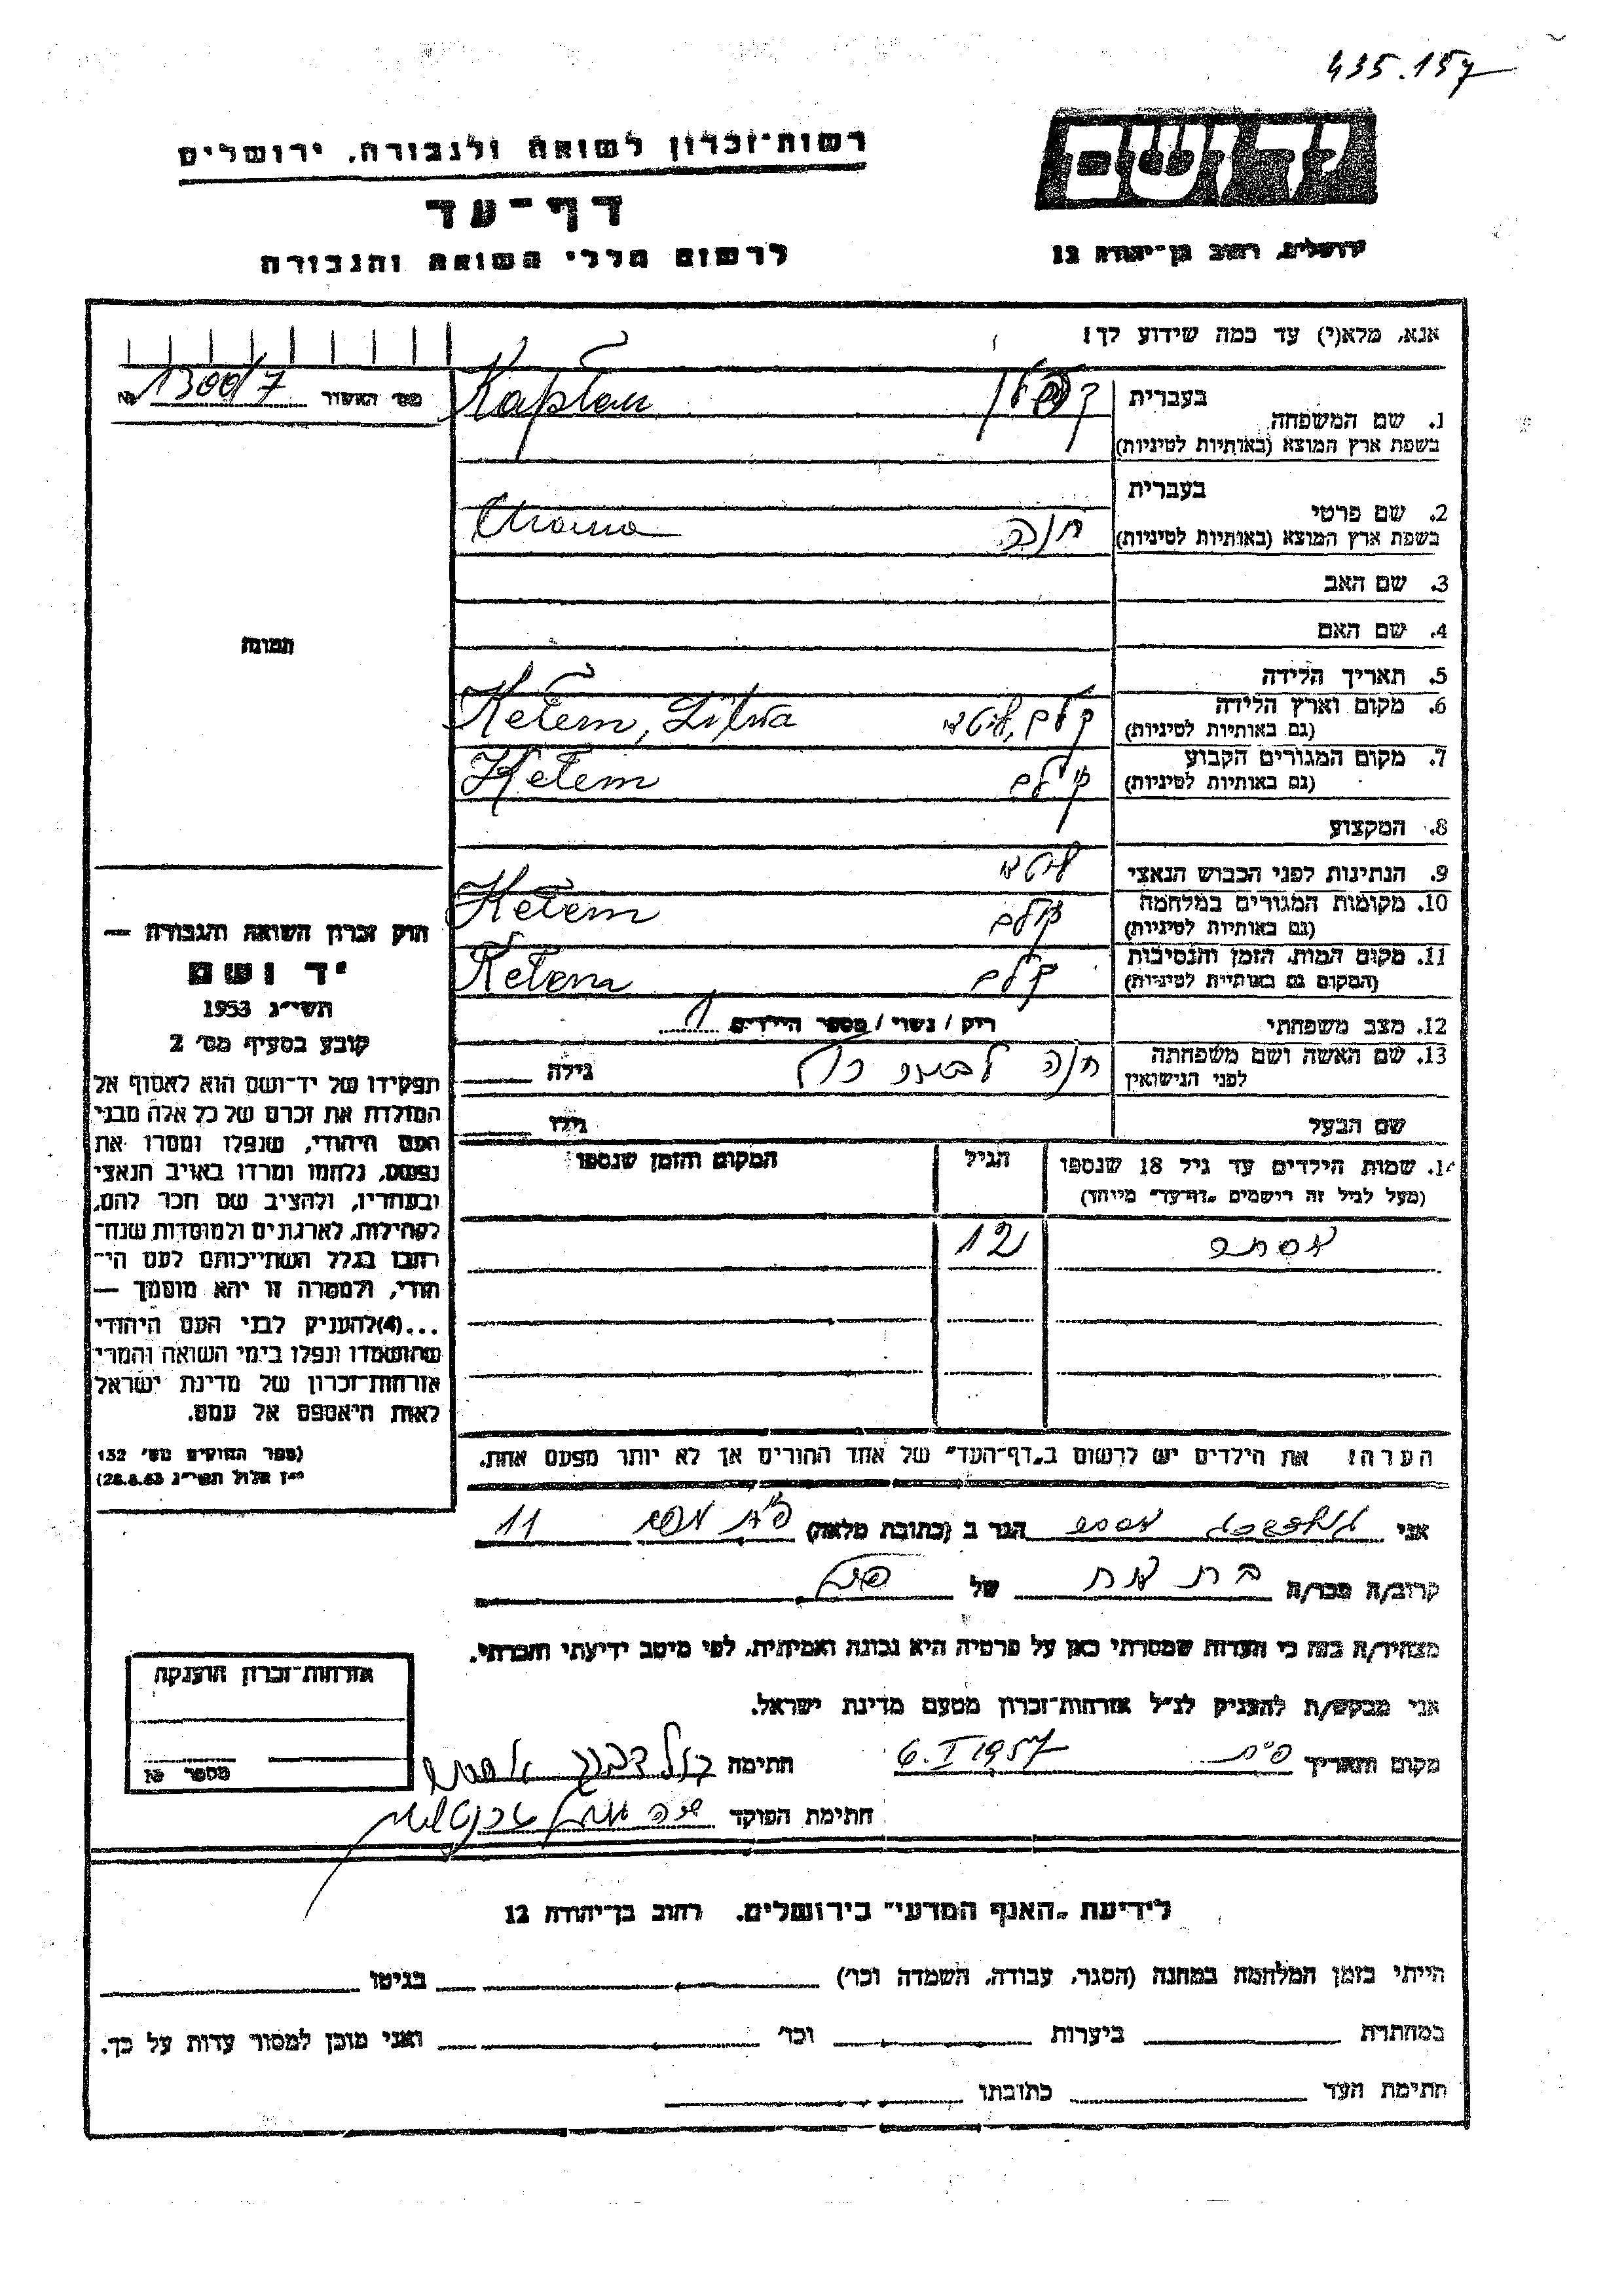 435.157
יד ושם
רשות־זכרון לשואה ולגבורה, ירושלים
דף־עד
לרשום חללי השואה והגבורה
ירושלים, רחוב בן־יהודה 12
אנא, מלא(י) עד כמה שידוע לך!
מס׳ האשור № 13006/7
1. שם המשפחה בעברית קפלן Kapłan
בשפת ארץ המוצא (באותיות לטיניות)
2. שם פרטי בעברית חנה Chana
בשפת ארץ המוצא (באותיות לטיניות)
3. שם האב
4. שם האם
תמונה
5. תאריך הלידה
6. מקום וארץ הלידה קלם, ליטא Kełem, Litwa
(גם באותיות לטיניות)
7. מקום המגורים הקבוע קלם Kełem
(גם באותיות לטיניות)
8. המקצוע
9. הנתינות לפני הכבוש הנאצי ליטא
10. מקומות המגורים במלחמה קלם Kełem
(גם באותיות לטיניות)
11. מקום המות, הזמן והנסיבות קלם Kełem
(המקום גם באותיות לטיניות)
12. מצב משפחתי רוק / נשוי / מספר הילדים 1
13. שם האשה ושם משפחתה חנה לבית גילה
לפני הנישואין
שם הבעל גילו
14. שמות הילדים עד גיל 18 שנספו הגיל המקום והזמן שנספו
(מעל לגיל זה רושמים „דף־עד” מיוחד)
12
הערה: את הילדים יש לרשום ב„דף־העד” של אחד ההורים אך לא יותר מפעם אחת.
חוק זכרון השואה והגבורה —
יד ושם
תשי״ג 1953
קובע בסעיף מס׳ 2
תפקידו של יד־ושם הוא לאסוף אל
המולדת את זכרם של כל אלה מבני
העם היהודי, שנפלו ומסרו את
נפשם, נלחמו ומרדו באויב הנאצי
ובעוזריו, ולהציב שם וזכר להם,
לקהילות, לארגונים ולמוסדות שנח־
רבו בגלל השתייכותם לעם הי־
הודי, ולמטרה זו יהא מוסמך —
...(4)להעניק לבני העם היהודי
שהושמדו ונפלו בימי השואה והמרי
אזרחות־זכרון של מדינת ישראל
לאות היאספם אל עמם.
(ספר החוקים מס׳ 132
י״ז אלול תשי״ג 28.8.53)
אני הגר ב (כתובת מלאה) 11
קרוב/ה מכר/ה בת אחות של
מצהיר/ה בזה כי העדות שמסרתי כאן על פרטיה היא נכונה ואמיתית, לפי מיטב ידיעתי והכרתי.
אני מבקש/ת להעניק לנ״ל אזרחות־זכרון מטעם מדינת ישראל.
מקום ותאריך 6.I 1957 חתימה
חתימת הפוקד
אזרחות־זכרון הוענקה
מספר №
לידיעת „האגף המדעי” בירושלים. רחוב בן־יהודה 12
הייתי בזמן המלחמה במחנה (הסגר, עבודה, השמדה וכו׳) בגיטו
במחתרת ביערות וכו׳ ואני מוכן למסור עדות על כך.
חתימת העד כתובתו